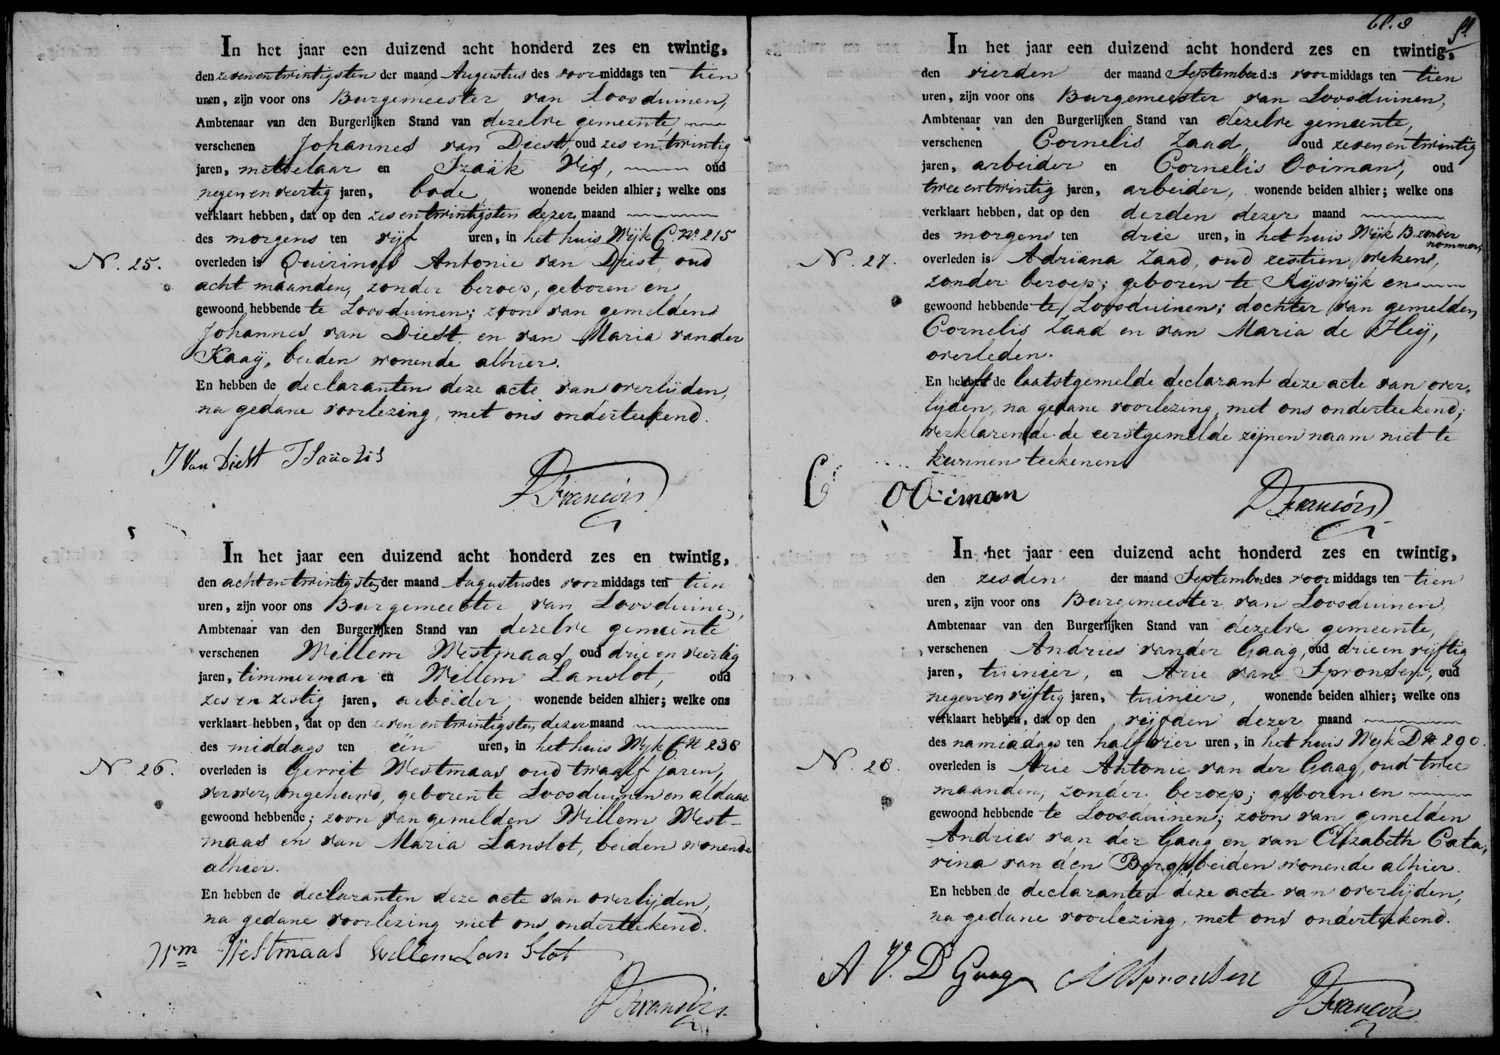 In het jaar een duizend acht honderd zes en twintig,
den zevenentwintigsten der maand Augustus des voormiddags ten tien
uren, zijn voor ons Burgemeester van Loosduinen,
Ambtenaar van den Burgerlijken Stand van dezelve gemeente,
verschenen Johannes van Diest, oud zes en twintig
jaren, metselaar en Izaäk Vis, oud
negen en veertig jaren, bode, wonende beiden alhier; welke ons
verklaart hebben, dat op den zes en twintigsten dezer maand
des morgens ten vijf uren, in het huis Wijk C. No. 215
N. 25. overleden is Quirinus Antonie van Diest, oud
acht maanden, zonder beroep, geboren en
gewoond hebbende te Loosduinen; zoon van gemelden
Johannes van Diest, en van Maria vander
Kaaÿ, beiden wonende alhier.
En hebben de declaranten deze acte van overlijden,
na gedane voorlezing, met ons onderteekend.
J Van Diest Isaac Vis
D François
In het jaar een duizend acht honderd zes en twintig,
den acht en twintigsten der maand Augustus des voormiddags ten tien
uren, zijn voor ons Burgemeester van Loosduinen,
Ambtenaar van den Burgerlijken Stand van dezelve gemeente
verschenen Willem Westmaas oud drie en veertig
jaren, timmerman en Willem Lanslot, oud
zes en zestig jaren, arbeider, wonende beiden alhier; welke ons
verklaart hebben, dat op den zeven en twintigsten dezer maand
des middags ten één uren, in het huis Wijk C No 238
N. 26. overleden is Gerrit Westmaas oud twaalf jaren,
verver, ongehuwd, geboren te Loosduinen en aldaar
gewoond hebbende; zoon van gemelden Willem West-
maas en van Maria Lanslot, beiden wonende
alhier.
En hebben de declaranten deze acte van overlijden,
na gedane voorlezing met ons onderteekend.
Wm Westmaas Willem Lan Slot
D François
In het jaar een duizend acht honderd zes en twintig,
den vierden der maand September des voormiddags ten tien
uren, zijn voor ons Burgemeester van Loosduinen,
Ambtenaar van den Burgerlijken Stand van dezelve gemeente,
verschenen Cornelis Zaad, oud zeven en twintig
jaren, arbeider en Cornelis Ooiman, oud
twee en twintig jaren, arbeider, wonende beiden alhier; welke ons
verklaart hebben, dat op den derden dezer maand
des morgens ten drie uren, in het huis Wijk B zonder nommer,
N. 27. overleden is Adriana Zaad, oud zestien weken,
zonder beroep; geboren te Rijswijk en
gewoond hebbende te Loosduinen; dochter van gemelden
Cornelis Zaad en van Maria de Heij,
overleden.
En heeft de laatstgemelde declarant deze acte van over-
lijden, na gedane voorlezing, met ons onderteekend;
verklarende de eerstgemelde zijnen naam niet te
kunnen teekenen.
C Ooiman
D François
In het jaar een duizend acht honderd zes en twintig,
den zesden der maand September des voormiddags ten tien
uren, zijn voor ons Burgemeester van Loosduinen,
Ambtenaar van den Burgerlijken Stand van dezelve gemeente,
verschenen Andries vander Gaag, oud drie en vijftig
jaren, tuinier, en Arie van Spronsen, oud
negen en vijftig jaren, tuinier, wonende beiden alhier; welke ons
verklaart hebben, dat op den vijfden dezer maand
des namiddags ten half vier uren, in het huis Wijk D No 290.
N. 28. overleden is Arie Antonie van der Gaag, oud twee
maanden, zonder beroep; geboren en
gewoond hebbende te Loosduinen; zoon van gemelden
Andries van der Gaag en van Elizabeth Cata,
rina van den Berg, beiden wonende alhier.
En hebben de declaranten deze acte van overlijden,
na gedane voorlezing, met ons onderteekend.
A V. D Gaag A V Spronsen
D François